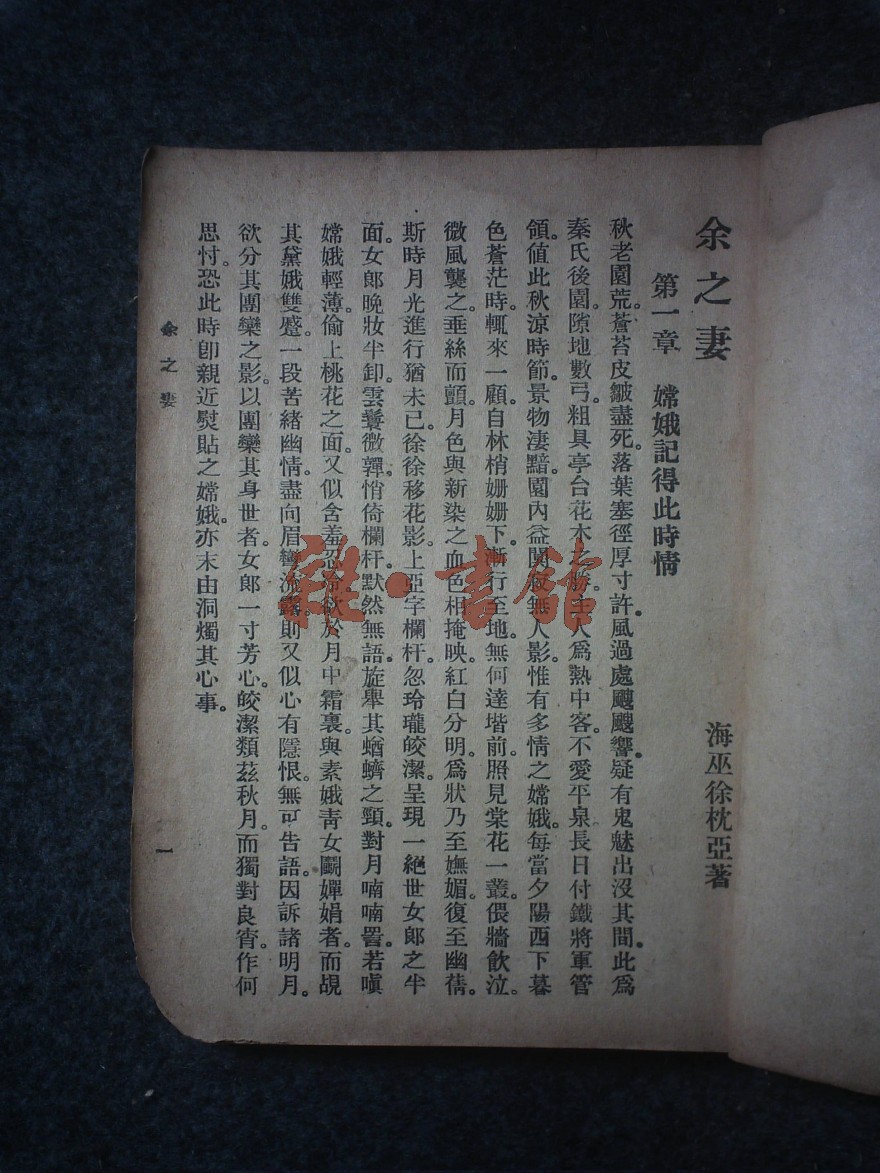 余之妻
海巫徐枕亞著
第一章 嫦娥記得此時情
秋老園荒。蒼苔皮皴盡死。落葉塞徑厚寸許。風過處颼颼響。疑有鬼魅出沒其間。此爲
秦氏後園。隙地數弓。粗具亭台花木之勝。主人爲熱中客。不愛平泉長日付鐵將軍管
領。值此秋涼時節。景物淒黯。園內益闃寂無人影。惟有多情之嫦娥。每當夕陽西下暮
色蒼茫時。輒來一顧。自林梢姗姗下。漸行至地。無何達堦前。照見棠花一叢。偎牆飲泣。
微風襲之。垂絲而顫。月色與新染之血色相掩映。紅白分明。爲狀乃至嫵媚。復至幽蒨。
斯時月光進行猶未已。徐徐移花影。上亞字欄杆。忽玲瓏皎潔。呈現一絕世女郎之半
面。女郎晚妝半卸。雲鬟微嚲。悄倚欄杆。默然無語。旋舉其蝤蠐之頸。對月喃喃詈。若嗔
嫦娥輕薄。偷上桃花之面。又似含羞忍冷。欲於月中霜裏。與素娥青女鬭嬋娟者。而覘
其黛娥雙蹙。一段苦緒幽情。盡向眉彎流露。則又似心有隱恨。無可告語。因訴諸明月。
欲分其團欒之影。以團欒其身世者。女郎一寸芳心。皎潔類茲秋月。而獨對良宵。作何
思忖。恐此時卽親近熨貼之嫦娥。亦末由洞燭其心事。
余之妻
一
雜·書館